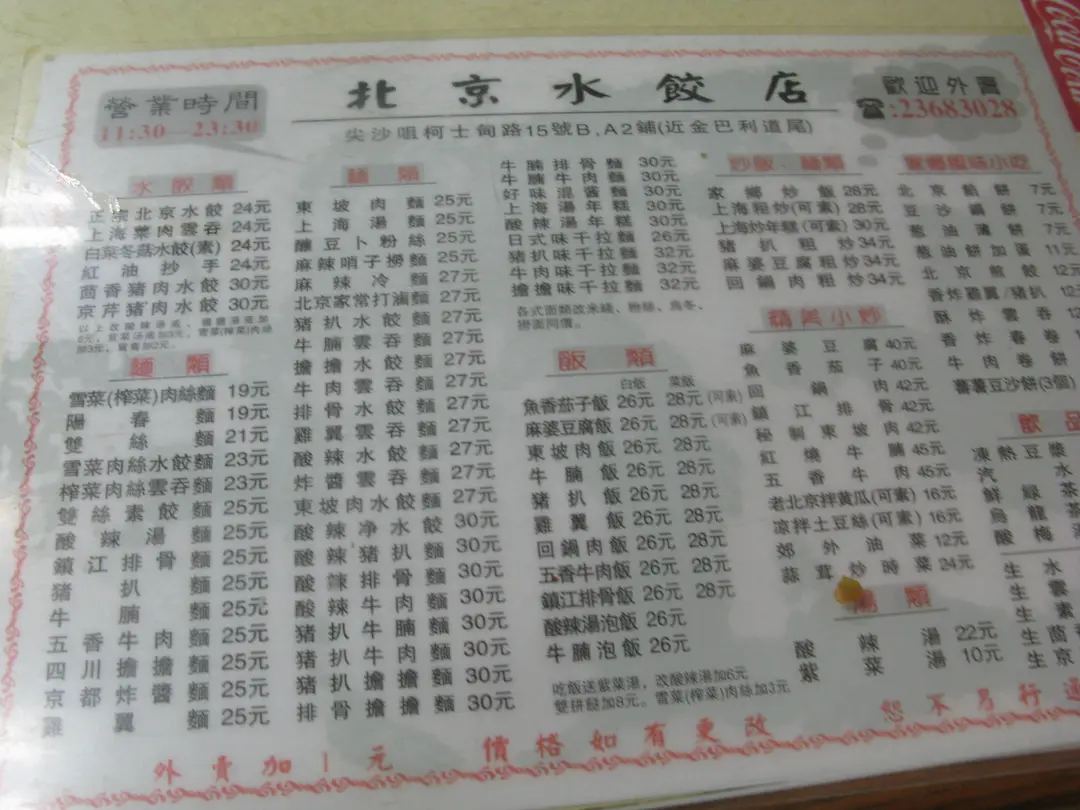 營業時間
11:30—23:30
北京水餃店
歡迎外賣
☎:23683028
尖沙咀柯士甸路15號B,A2鋪(近金巴利道尾)
水餃類
正宗北京水餃 24元
上海菜肉雲吞 24元
白菜冬菇水餃(素) 24元
紅油抄手 24元
茴香豬肉水餃 30元
京芹豬肉水餃 30元
麵類
雪菜(榨菜)肉絲麵 19元
陽春麵 19元
雙絲麵 21元
雪菜肉絲水餃麵 23元
榨菜肉絲雲吞麵 23元
雙絲素餃麵 25元
酸辣湯麵 25元
鎮江排骨麵 25元
豬扒麵 25元
牛腩麵 25元
五香牛肉麵 25元
四川擔擔麵 25元
京都炸醬麵 25元
雞翼麵 25元
麵類
東坡肉麵 25元
上海湯麵 25元
釀豆卜粉絲 25元
麻辣哨子撈麵 25元
麻辣冷麵 27元
北京家常打滷麵 27元
豬扒水餃麵 27元
牛腩雲吞麵 27元
擔擔水餃麵 27元
牛肉雲吞麵 27元
排骨水餃麵 27元
雞翼雲吞麵 27元
酸辣水餃麵 27元
炸醬雲吞麵 27元
東坡肉水餃麵 27元
酸辣净水餃 30元
酸辣豬扒麵 30元
酸辣排骨麵 30元
酸辣牛肉麵 30元
豬扒牛腩麵 30元
豬扒牛肉麵 30元
豬扒擔擔麵 30元
排骨擔擔麵 30元
牛腩排骨麵 30元
牛腩牛肉麵 30元
好味混醬麵 30元
上海湯年糕 30元
酸辣湯年糕 30元
日式味千拉麵 26元
豬扒味千拉麵 32元
牛肉味千拉麵 32元
擔擔味千拉麵 32元
各式面類改米綫、粉絲、烏冬、
撈面同價。
飯類
白飯 菜飯
魚香茄子飯 26元 28元(可素)
麻婆豆腐飯 26元 28元(可素)
東坡肉飯 26元 28元
牛腩飯 26元 28元
豬扒飯 26元 28元
雞翼飯 26元 28元
回鍋肉飯 26元 28元
五香牛肉飯 26元 28元
鎮江排骨飯 26元 28元
酸辣湯泡飯 26元
牛腩泡飯 26元
吃飯送紫菜湯，改酸辣湯加6元
雙拼餸加8元。雪菜(榨菜)肉絲加3元
炒飯、麵類
家鄉炒飯 28元
上海粗炒(可素) 28元
上海炒年糕(可素) 30元
豬扒粗炒 34元
麻婆豆腐粗炒 34元
回鍋肉粗炒 34元
精美小炒
麻婆豆腐 40元
魚香茄子 40元
回鍋肉 42元
鎮江排骨 42元
秘制東坡肉 42元
紅燒牛腩 45元
五香牛肉 45元
老北京拌黄瓜(可素) 16元
凉拌土豆絲(可素) 16元
郊外油菜 12元
蒜茸炒時菜 24元
湯類
酸辣湯 22元
紫菜湯 10元
家鄉風味小吃
北京餡餅 7元
豆沙鍋餅 7元
葱油薄餅 7元
葱油餅加蛋 11元
北京煎餃 12元
香炸雞翼/豬扒 12
酥炸雲吞 12
香炸春卷
牛肉卷餅
薯蓉豆沙餅(3個)
飲品
凍熱豆漿
汽水
鮮綠茶
烏龍茶
酸梅湯
生水
生雲
生素
生茴
生京
外賣加1元
價格如有更改
恕不另行通